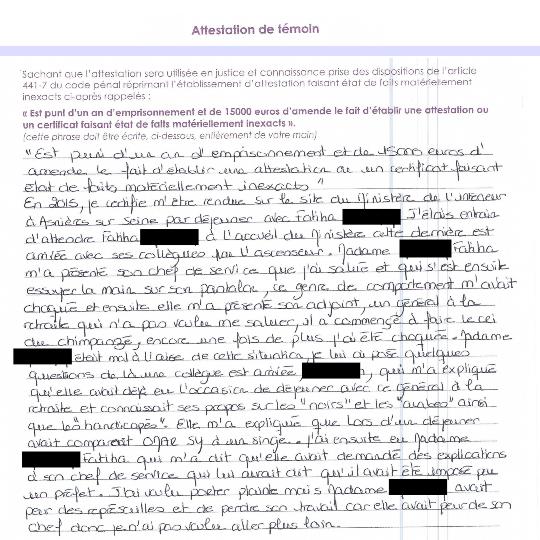 Attestation de témoin
Sachant que l'attestation sera utilisée en justice et connaissance prise des dispositions de l'article
441-7 du code pénal réprimant l'établissement d'attestation faisant état de faits matériellement
inexacts ci-après rappelés :
« Est puni d'un an d'emprisonnement et de 15000 euros d'amende le fait d'établir une attestation ou
un certificat faisant état de faits matériellement inexacts ».
(cette phrase doit être écrite, ci-dessous, entièrement de votre main)
"Est puni d'un an d'emprisonnement et de 15000 euros d'
amende le fait d'établir une attestation ou un certificat faisant
état de faits matériellement inexacts"
En 2015, je certifie m'être rendue sur le site du Ministère de l'intérieur
à Asnières sur seine par déjeuner avec Fatiha J'étais entrain
d'attendre Fatiha à l'accueil du Ministère cette dernière est
arrivée avec ses collègues par l'ascenseur. Madame Fatiha
m'a présenté son chef de service que j'ai salué et qui s'est ensuite
essuyer la main sur son pantalon, ce genre de comportement m'avait
choquée et ensuite elle m'a présenté son adjoint, un général à la
retraite qui n'a pas voulu me saluer, il a commencé à faire le cri
du chimpanzé, encore une fois de plus j'ai été choquée. Madame
était mal à l'aise de cette situation, je lui ai posé quelques
questions de là une collègue est arrivée , qui m'a expliqué
qu'elle avait déjà eu l'occasion de déjeuner avec ce général à la
retraite et connaissait ses propos sur les "noirs" et les "arabes" ainsi
que les "handicapés". Elle m'a expliqué que lors d'un déjeuner
avait comparé OMAR SY à un singe. J'ai ensuite eu Madame
Fatiha qui m'a dit qu'elle avait demandé des explications
à son chef de service qui lui aurait dit qu'il avait été imposé par
un préfet. J'ai voulu porter plainte mais Madame avait
peur des représailles et de perdre son travail car elle avait peur de son
chef donc je n'ai pas voulu aller plus loin.